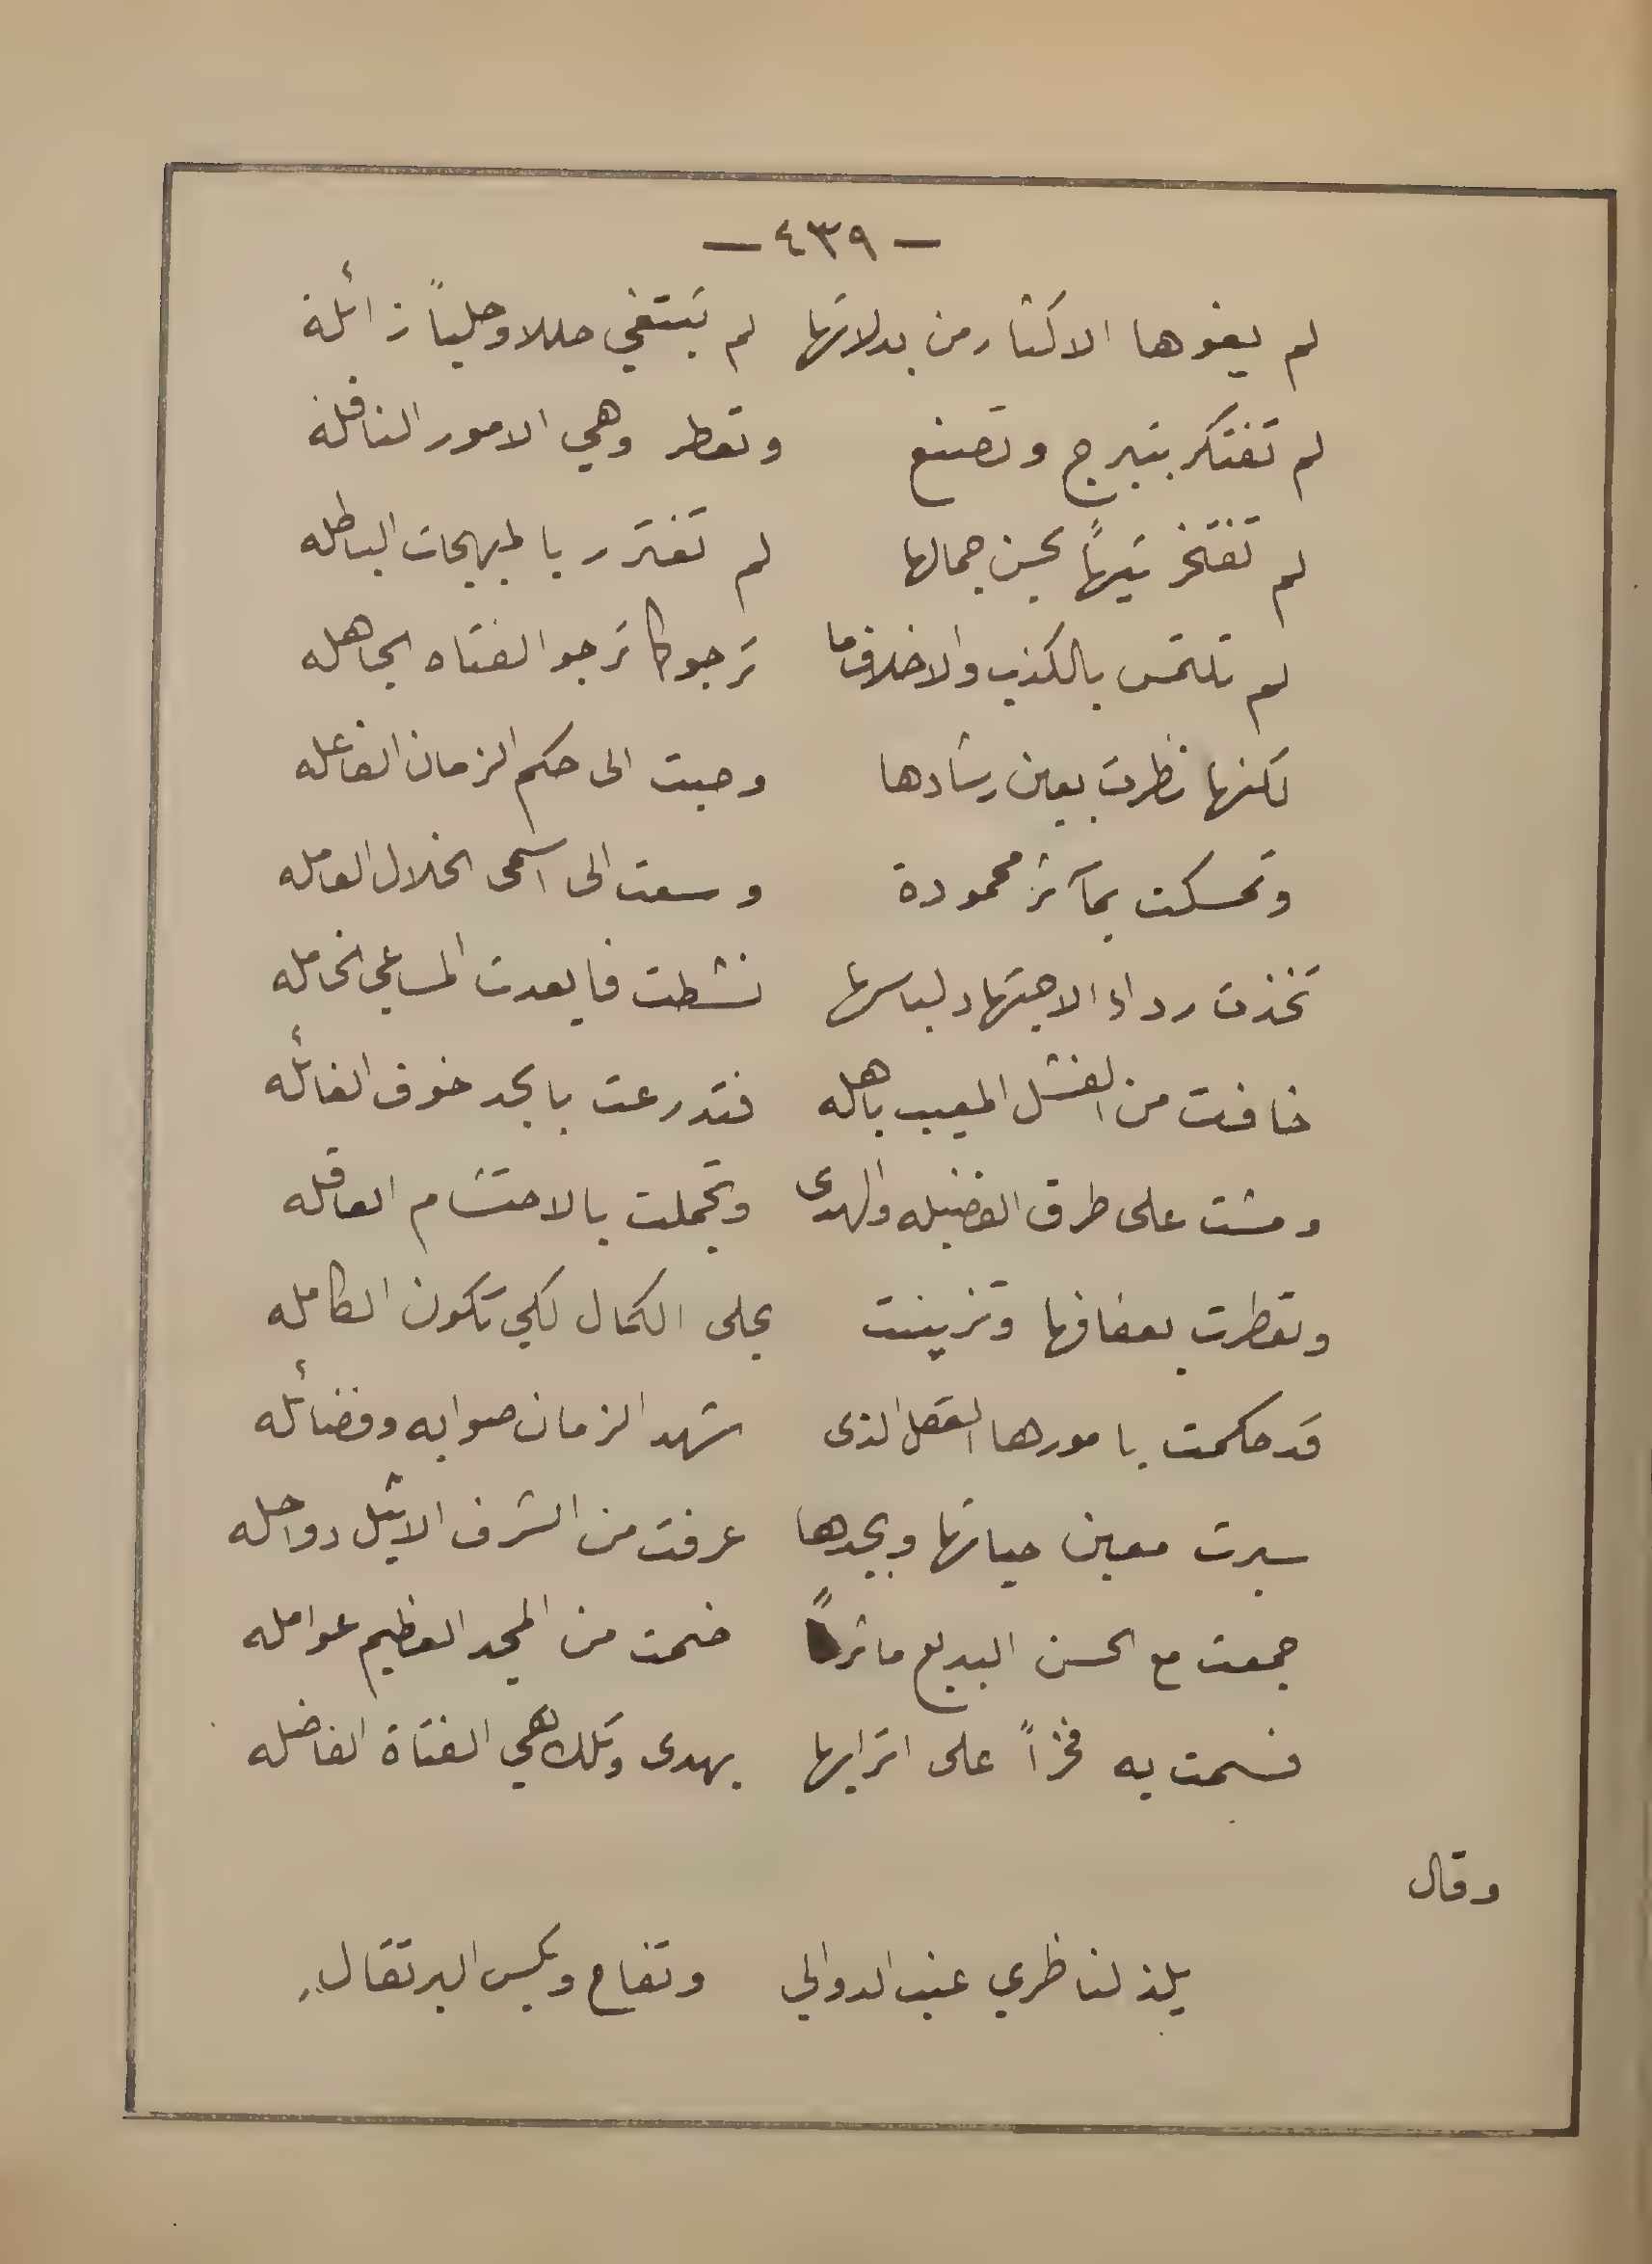 — ٤٣٩ —
لم يغوها الاكثار من بدلاتها لم تبتغي حللا وحلياً زائلة
لم تفتكر بتبرج وتصنع وتعطر وهي الامور النافلة
لم تفتخر تيهاً بحسن جمالها لم تغترر بالمبهجات الباطله
لم تلتمس بالكذب والاخلاف ما ترجو كما ترجو الفتاه الجاهله
لكنها نظرت بعين رشادها وحبت الى حكم الزمان الفاعله
وتمسكت بمآثر محمودة وسعت الى اسمى الخلال العامله
تخذت رداء الاجتهاد لباسها نشطت فابعدت المساعي الخامله
خافت من الفشل المعيب باهله فتدرعت بالجد خوف الغائله
ومشت على طرق الفضيله والهدى وتجملت بالاحتشام العاقله
وتعطرت بعفافها وتزينت بحلى الكمال لكي تكون الكامله
قد حكمت بامورها العقل الذى شهد الزمان صوابه وفضائله
سبرت معين حياتها وبجدها عرفت من الشرف الاثيل دواخله
جمعت مع الحسن البديع ماثراً ضمت من المجد العظيم عوامله
فسمت به فخراً على اترابها بهدى وتلك هي الفتاة الفاضله
وقال
يلذ لناظري عنب الدوالي وتفاح وبكس البرتقال